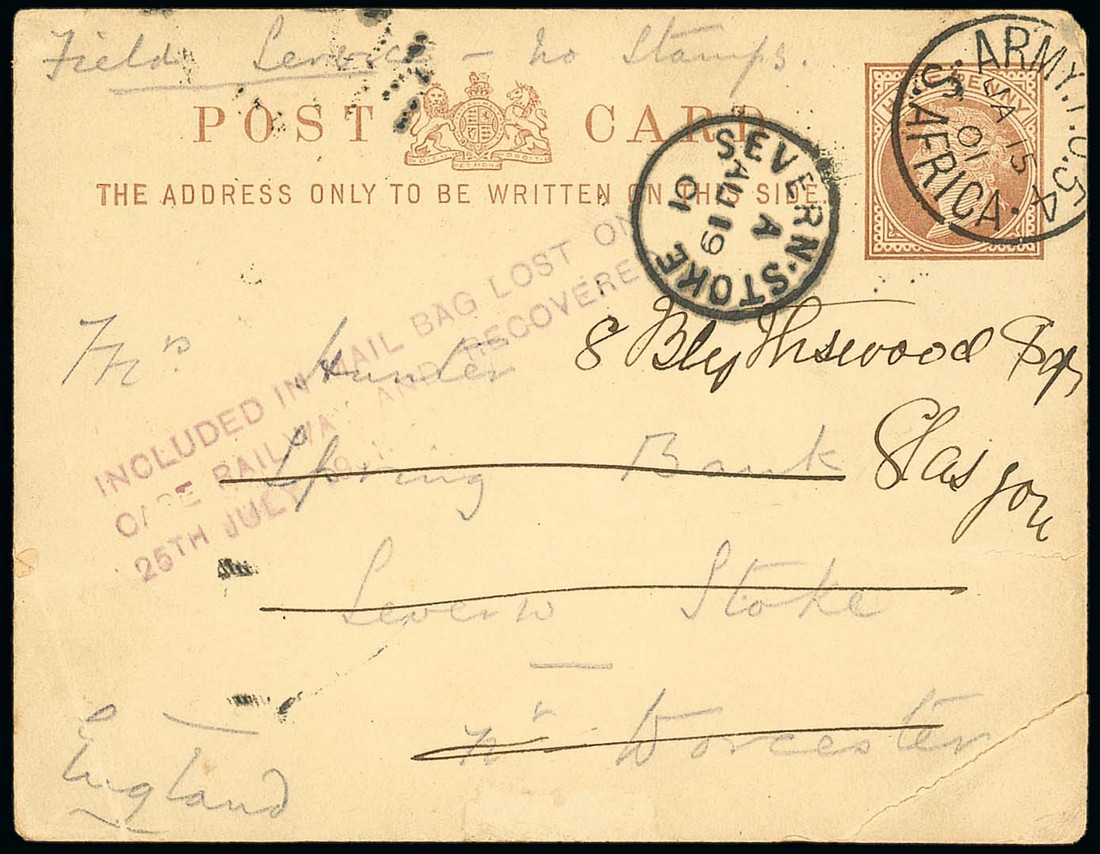 Field Service – No Stamps.
POST CARD
THE ADDRESS ONLY TO BE WRITTEN ON THIS SIDE.
HALFPENNY
ARMY.P.O.54
JA 15
01
S.AFRICA.
SEVERN·STOKE
A
AU 19
01
INCLUDED IN MAIL BAG LOST ON
CAPE RAILWAY AND RECOVERED
25TH JULY 1901
Mrs Hunter
8 Blythswood Sqr
Glasgow
Spring Bank
Severn Stoke
nr Worcester
England